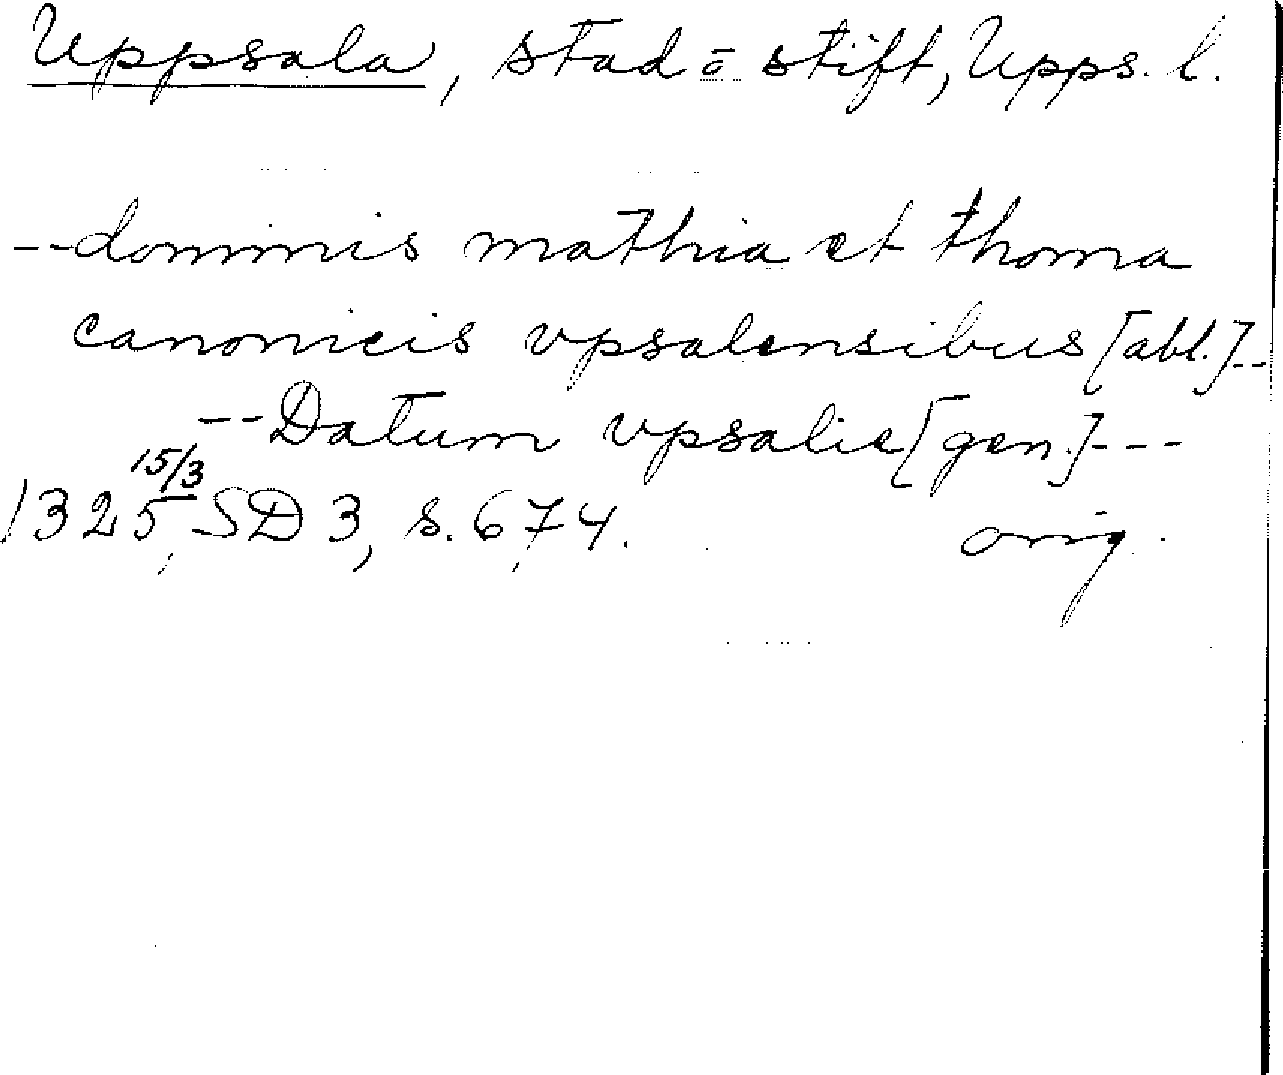 Uppsala, stad o stift, Upps. l.
--dominis mathia et thoma
canonicis vpsalensibus [abl.]--
--Datum vpsalie [gen.]---
15/3
1325, SD 3, s. 674. orig.